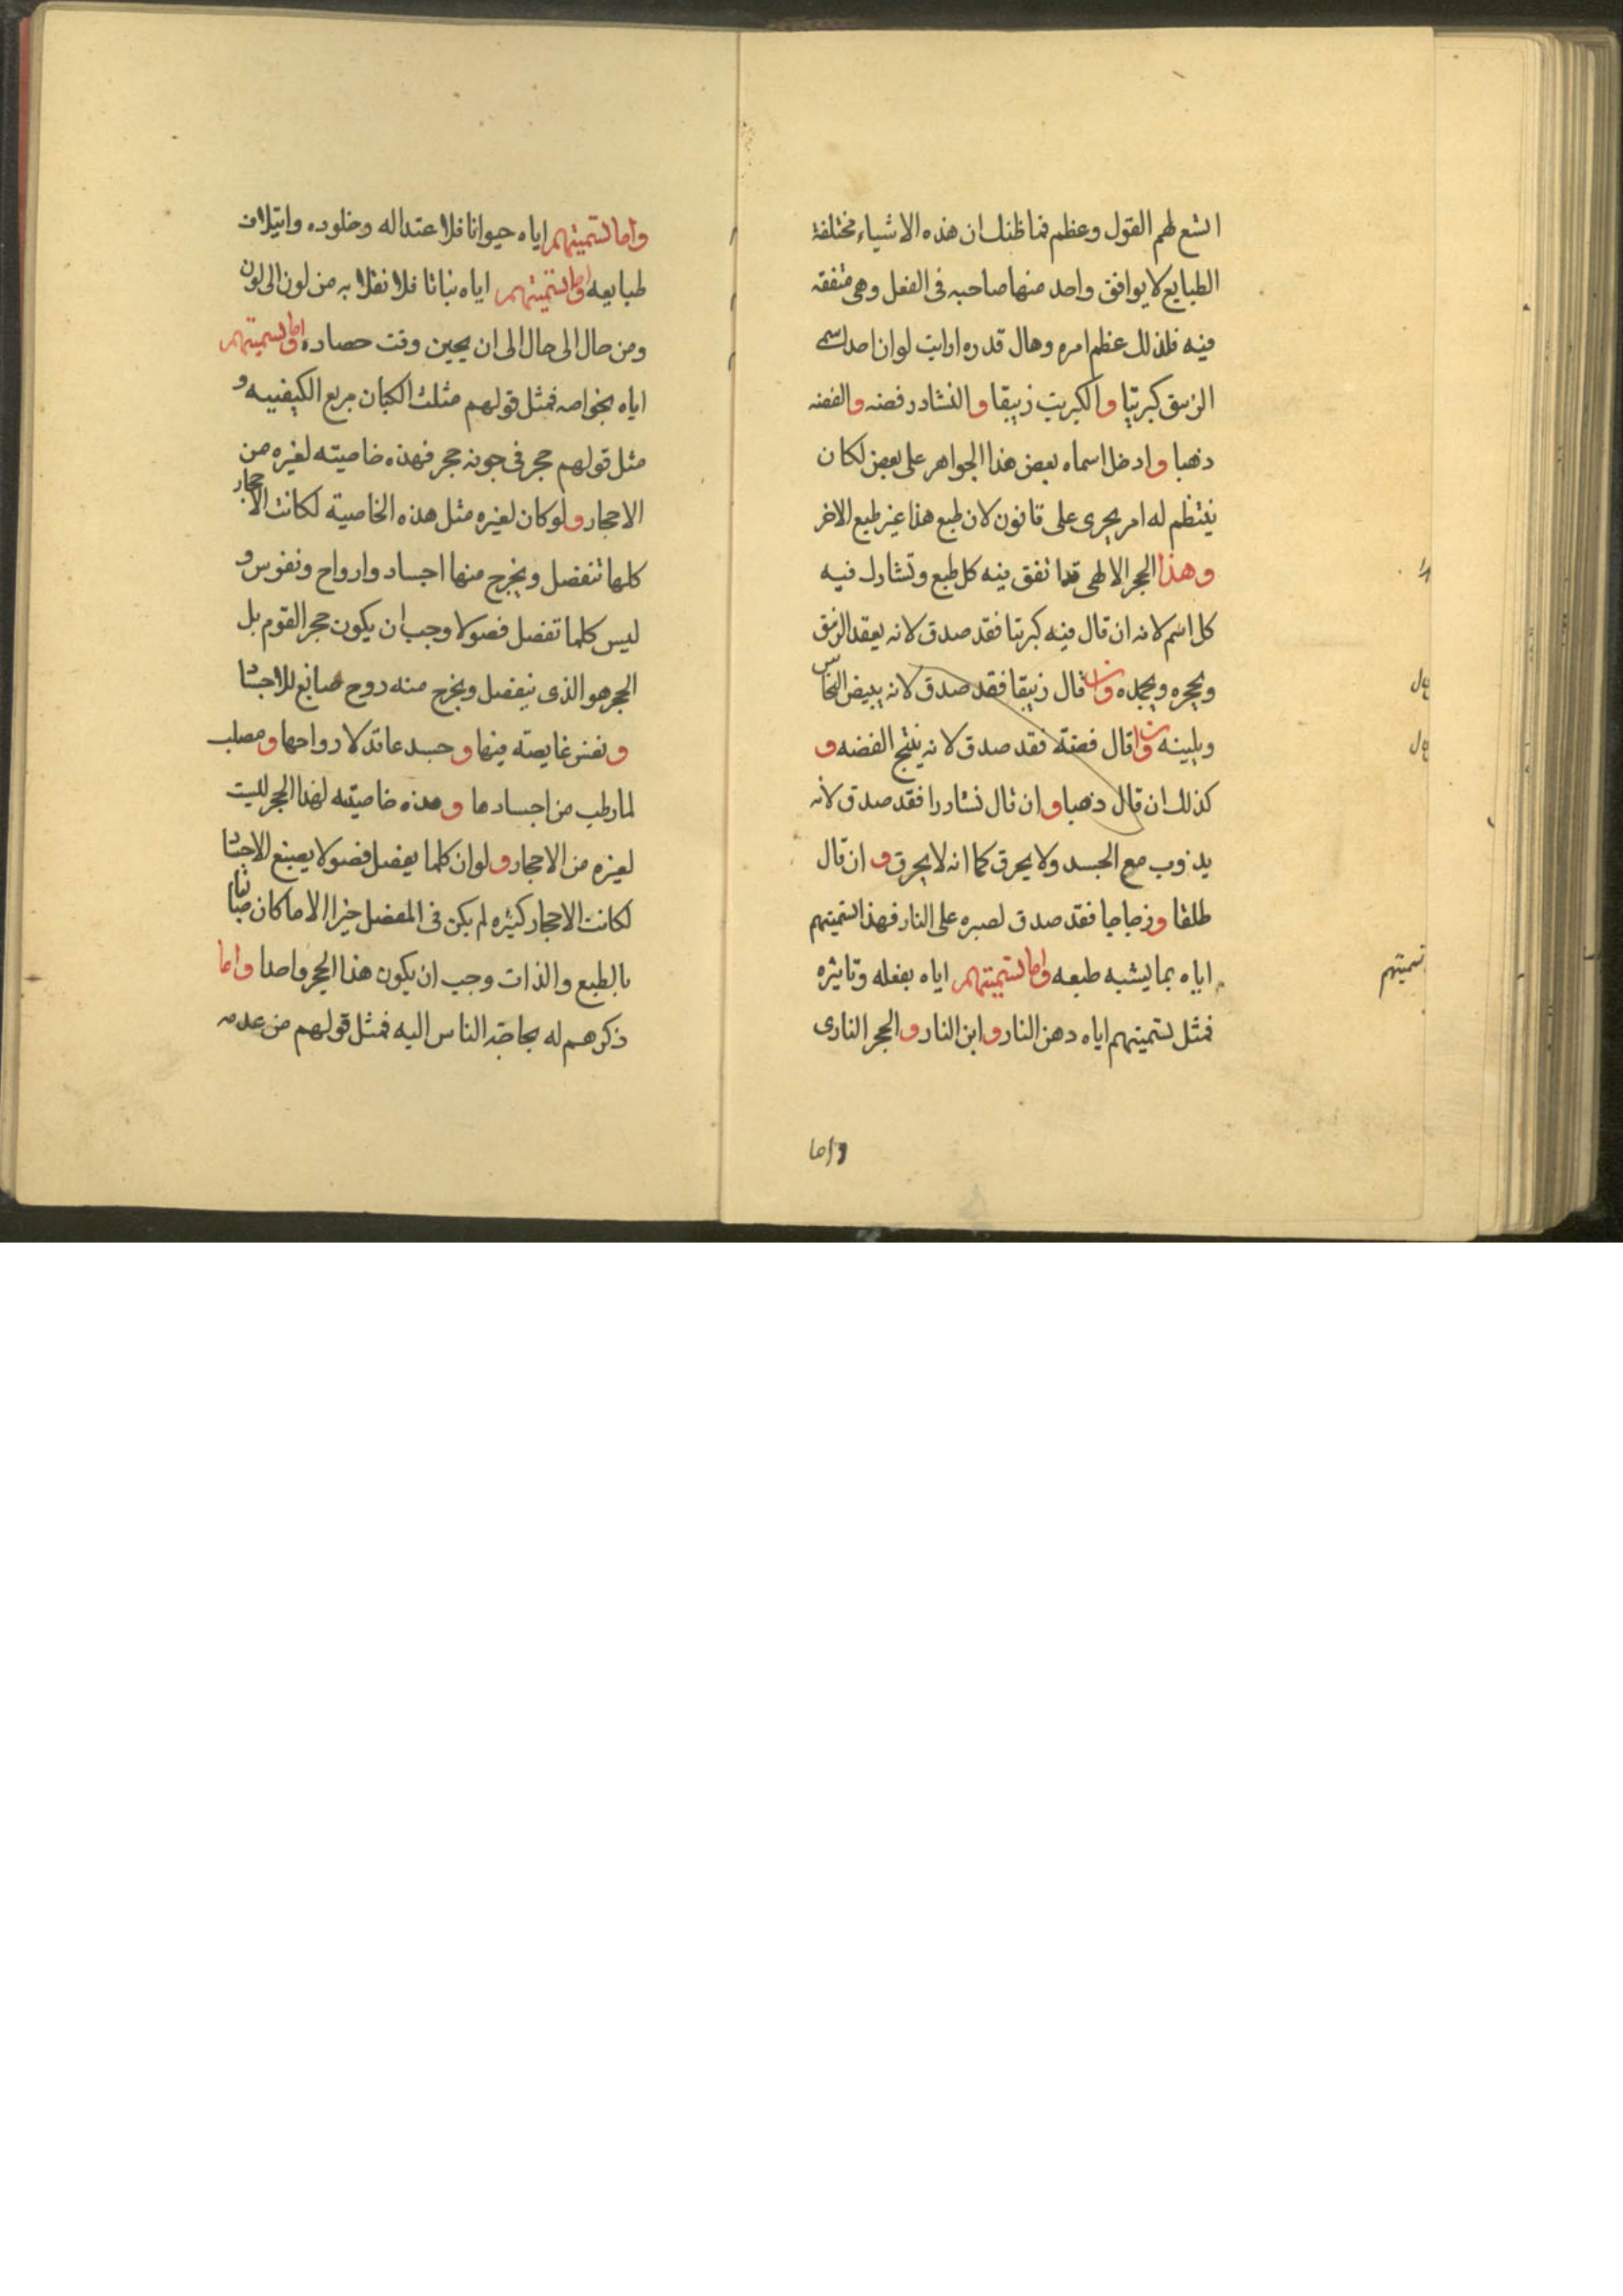 اتسع لهم القول وعظم فما ظنك ان هذه الاشياء مختلفة
الطبايع لا يوافق واحد منها صاحبه فى الفعل وهى متفقه
فيه فلذلك عظم امره وهال قدره ارايت لو ان احدا سمى
الزيبق كبريتا والكبريت زيبقا والنشادر فضه والفضه
ذهبا وادخل اسماء بعض هذا الجواهر على بعض لكان
ينتظم له امر يجرى على قانون لان طبع هذا غير طبع الاخر
وهذا الحجر الالهى قد اتفق فيه كل طبع وتشارك فيه
كل اسم لانه ان قال فيه كبريتا فقد صدق لانه يعقد الزيبق
ويحجره ويجمده وان قال زيبقا فقد صدق لانه يبيض النحاس
ويلينه وان قال فضة فقد صدق لانه ينتج الفضه و
كذلك ان قال ذهبا وان قال نشادرا فقد صدق لانه
يذوب مع الجسد ولا يحرق كما انه لا يحرق و ان قال
طلقا وزجاجا فقد صدق لصبره على النار فهذا تسميتهم
اياه بما يشبه طبعه واما تسميتهم اياه بفعله وتاثيره
فمثل تسميتهم اياه دهن النار وابن النار والحجر النارى
واما
تسميتهم
واما تسميتهم اياه حيوانا فلاعتداله وخلوده وايتلاف
طبايعه واما تسميتهم اياه نباتا فلانقلابه من لون الى لون
ومن حال الى حال الى ان يحين وقت حصاده واما تسميتهم
اياه بخواصه فمثل قولهم مثلث الكيان مربع الكيفيه و
مثل قولهم حجر فى جوفه حجر فهذه خاصيته لغيره من
الاحجار ولو كان لغيره مثل هذه الخاصية لكانت الاحجار
كلها تنفصل ويخرج منها اجساد وارواح ونفوس و
ليس كلما تفصل فصولا وجب ان يكون حجر القوم بل
الحجر هو الذى ينفصل ويخرج منه روح صابغ للاجساد
ونفس غايصه فيها وجسد عاقد لارواحها ومصلب
لما رطب من اجسادها وهذه خاصيته لهذا الحجر ليست
لغيره من الاحجار ولو ان كلما يفصل فصولا يصبغ الاجساد
لكانت الاحجار كثيره لم يكن فى المفصل خيرا الا ما كان صباغا
بالطبع والذات وجب ان يكون هذا الحجر واحدا واما
ذكرهم له بحاجة الناس اليه فمثل قولهم من عدمه